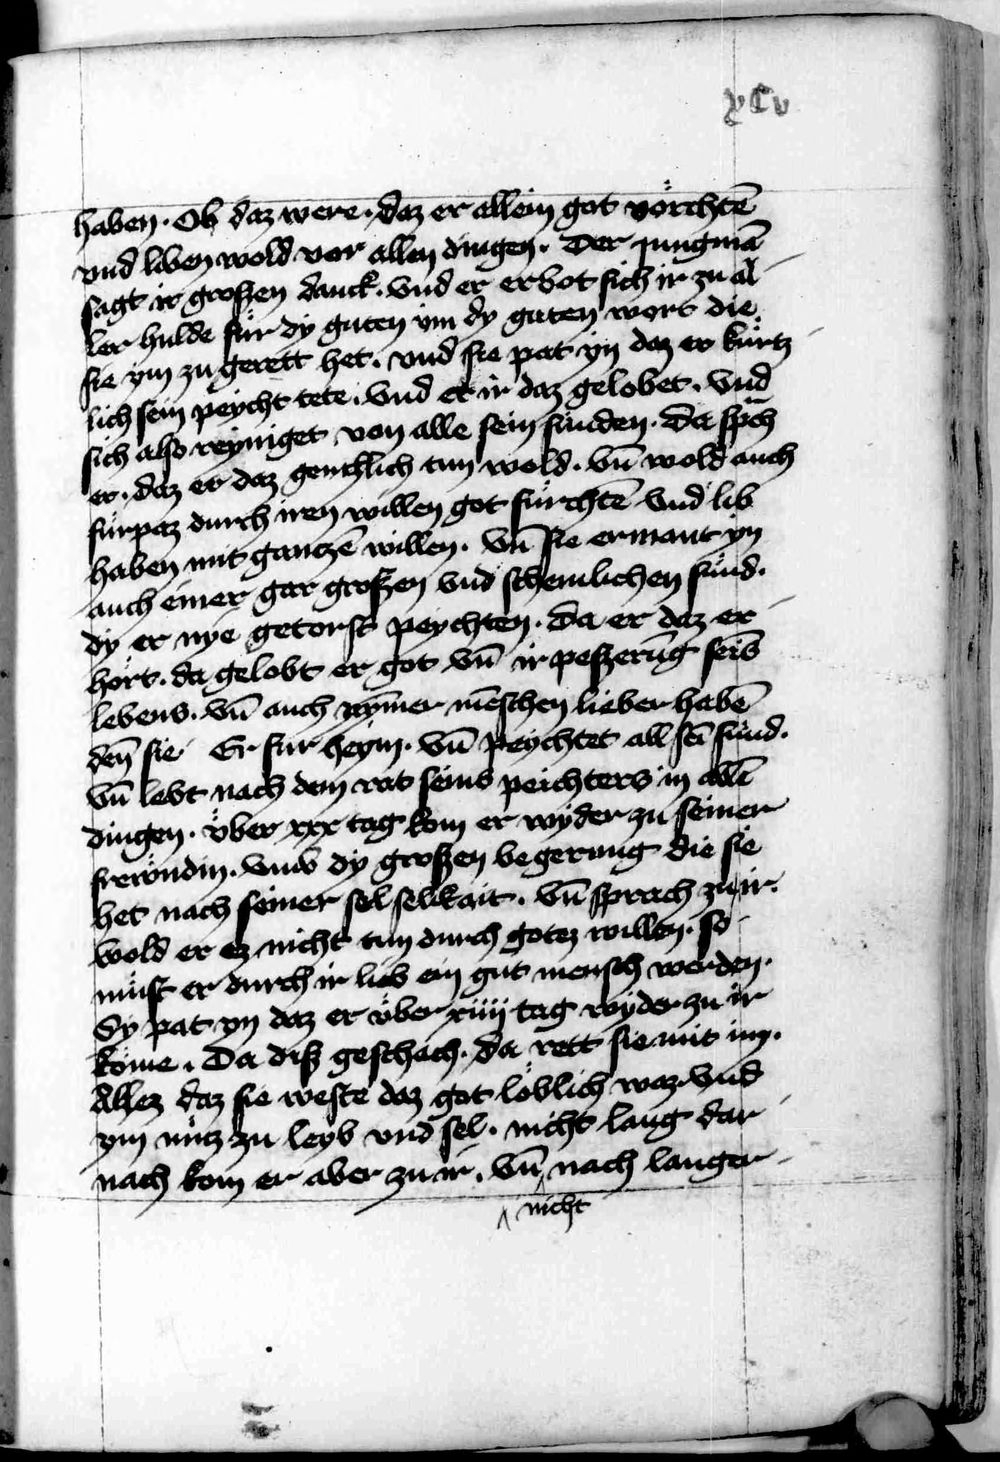 xCv
haben. Ob daz were. daz er allein got vörchtē
vnd liben wold vor allen dingen. Der jungmā
sagt ir groſzen danck. vnd er erbot sich ir zu al
ler hulde für dy guten vm dy guten wort die
sie ym zu gerett het. vnd sie pat yn daz er kürtz
lich sein peycht tete. vnd er ir daz gelobet. vnd
sich also reyniget von alle sein sünden. Da sp̄ch
er. daz er daz gentzlich tun wold. vn̄ wold auch
fürpaz durch iren willen got fürchtē vnd lib
haben mit gantzē willen. vn̄ sie ermant yn
auch einer gar groſzen vnd schemlichen sünd.
dy er nye getorst peychten. Da er daz er
hört. da gelobt er got vn̄ ir peſzerūg seīs
lebens. vn̄ auch nȳmer mēschen lieber habē
den̄ sie Er fur heym. vn̄ peychtet all seī sünd.
vn̄ lebt nach dem rat seins peichters in allē
dingen. v̈ber xxx tag kom er wyder zu seiner
frewndin. vmb dy groſzen begerung die sie
het nach seiner sel selikait. vn̄ sprach zu ir.
wold er ez nicht tun durch gotez willen. so
müst er durch ir lieb ein gut mensch werden.
Sy pat yn daz er v̈ber xiiij tag wyder zu ir
köme. Da diſz geschach. da rett sie mit im.
Allez daz sie weste daz got löblich waz. vnd
ym nütz zu leyb vnd sel. nicht lang dar
nach kom er aber zu ir. vn̄ nach langer
^ nicht